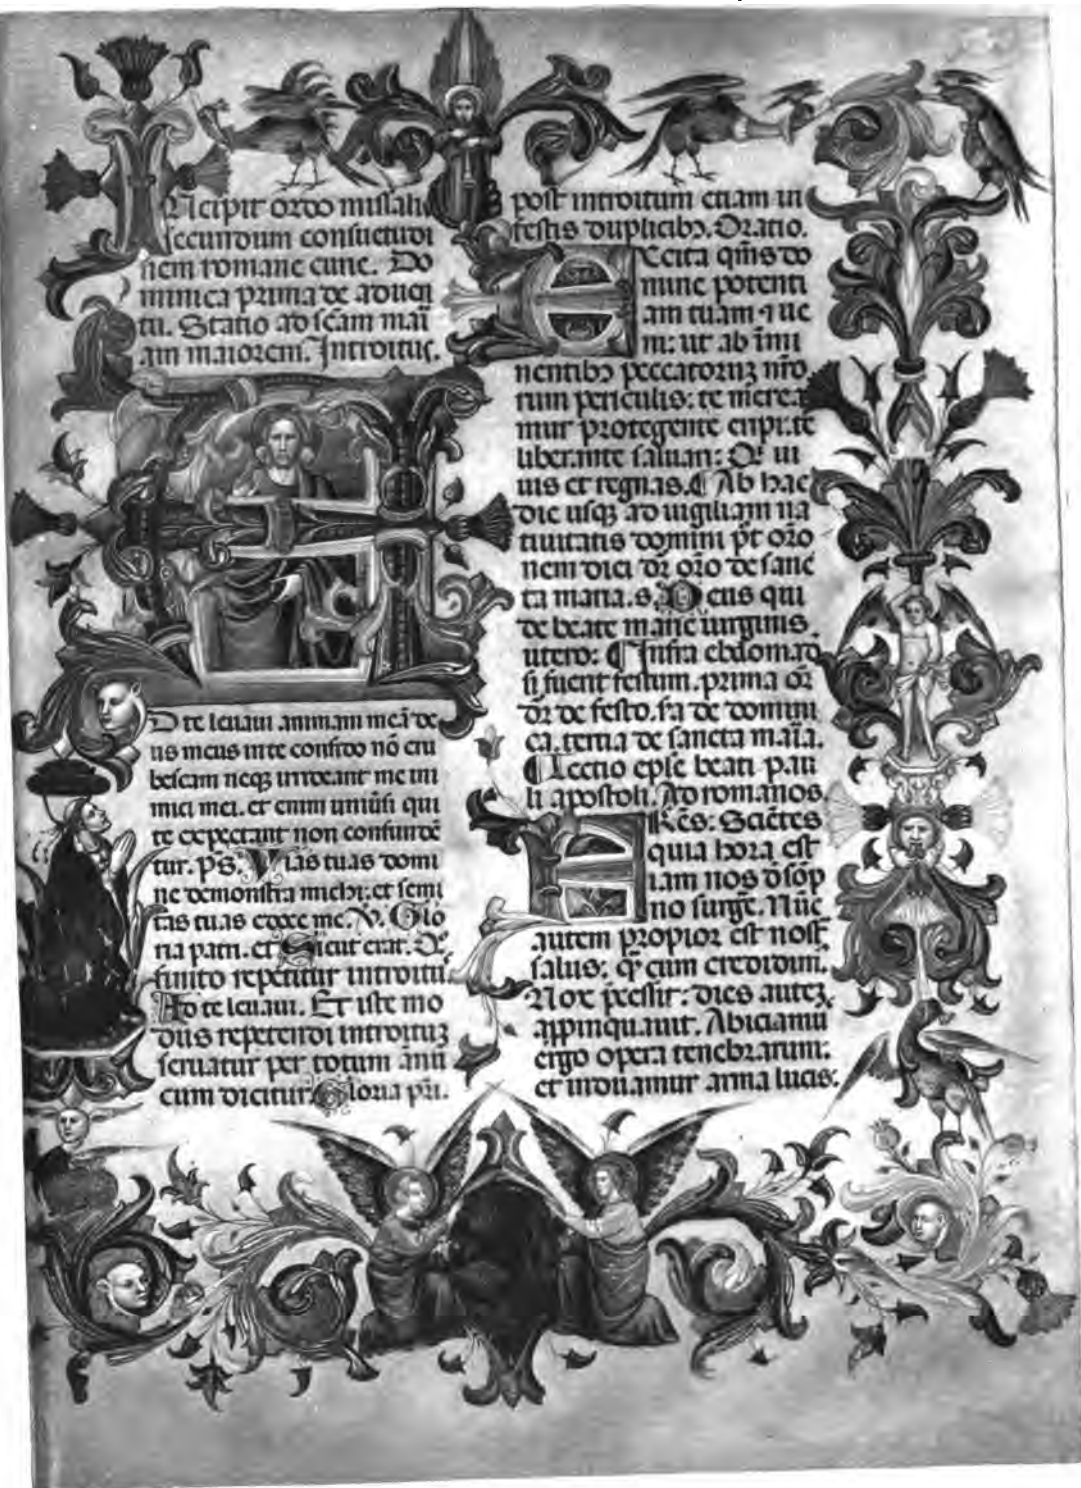 Incipit ordo missalis
secundum consuetudi
nem romane curie. Do
minica prima de aduen
tu. Statio ad scam mari
am maiorem. Introitus.
D te leuaui animam meā de
us meus in te confido nō eru
bescam neqꝫ irrideant me ini
mici mei. et enim uniūsi qui
te expectant non confundē
tur. ps. Vias tuas domi
ne demonstra michi: et semi
tas tuas edoce me. V. Glo
ria patri. et Sicut erat. Quo
finito repetitur introitus
Ad te leuaui. Et iste mo
dus repetendi introitūꝫ
seruatur per totum annū
cum dicitur. Gloria pri.
post introitum etiam in
festis duplicibꝫ. Oratio.
Excita qms do
mine potenti
am tuam ⁊ ue
ni: ut ab imi
nentibꝫ peccatorūꝫ nro
rum periculis: te merea
mur protegente eripi. te
liberante saluari: Qi ui
uis et regnas. ¶ Ab hac
die usqꝫ ad uigiliam na
tiuitatis domini pt orō
nem diei dr orō de sanc
ta maria. s. Deus qui
de beate marie uirginis
utero: ¶ Infra ebdomad
si fuerit festum. prima or
dr de festo. sa de domini
ca. tertia de sancta maria.
¶ Lectio eple beati pau
li apostoli. Ad romanos.
Fres: Scietes
quia hora est
iam nos d sop
no surge. Nūc
autem propior est nost
salus: qr cum credidim.
Nox pcessit: dies autēꝫ
appinquauit. Abiciamu
ergo opera tenebrarum:
et induamur arma lucis: